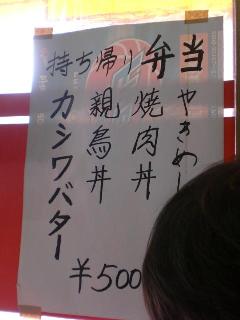 持ち帰り弁当
やきめし
焼肉丼
親鳥丼
カシワバター
¥500